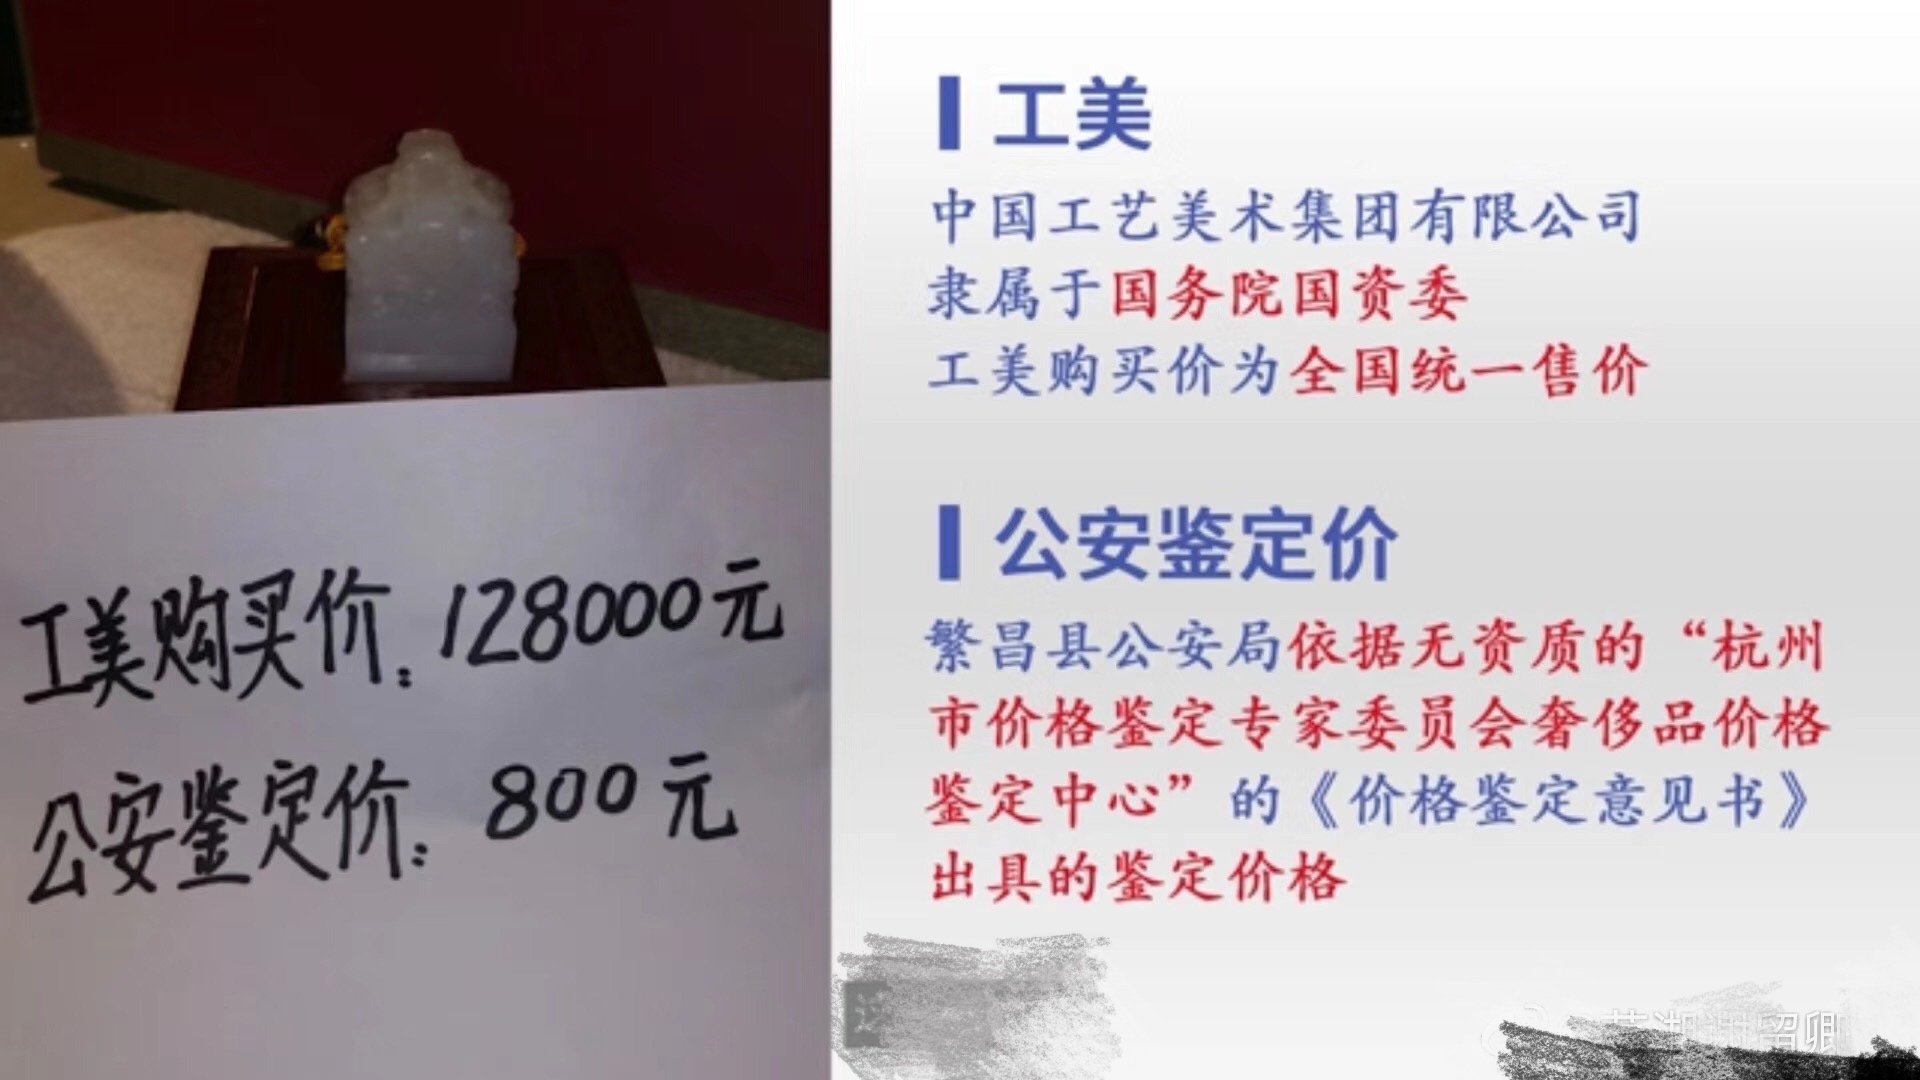 工美购买价：128000元
公安鉴定价：800元
工美
中国工艺美术集团有限公司
隶属于国务院国资委
工美购买价为全国统一售价
公安鉴定价
繁昌县公安局依据无资质的“杭州
市价格鉴定专家委员会奢侈品价格
鉴定中心”的《价格鉴定意见书》
出具的鉴定价格